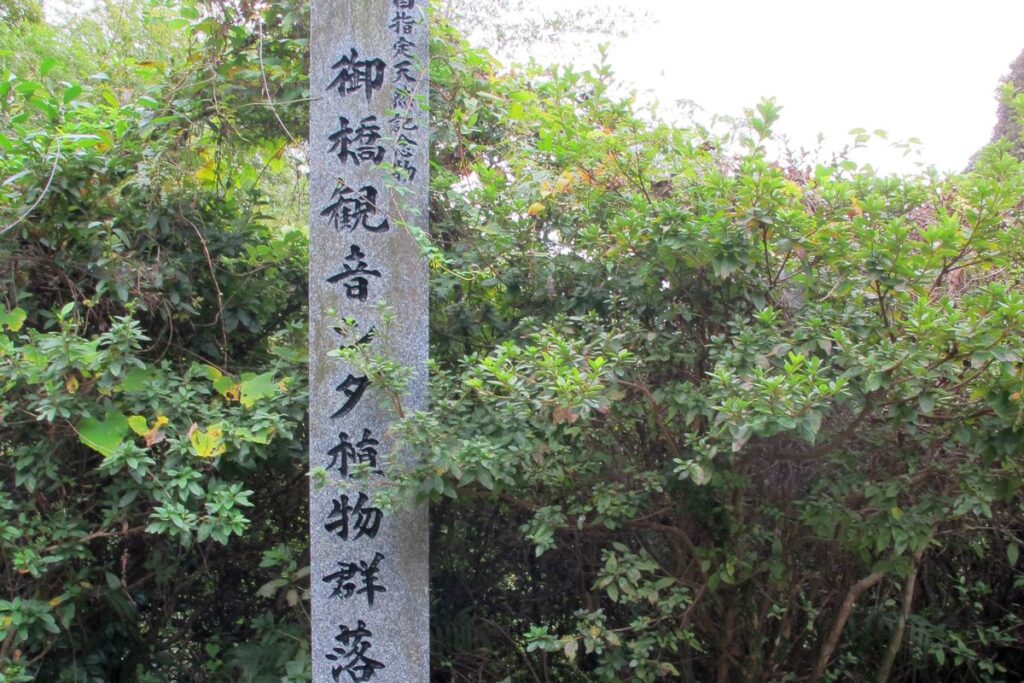 国指定天然記念物
御橋観音シダ植物群落